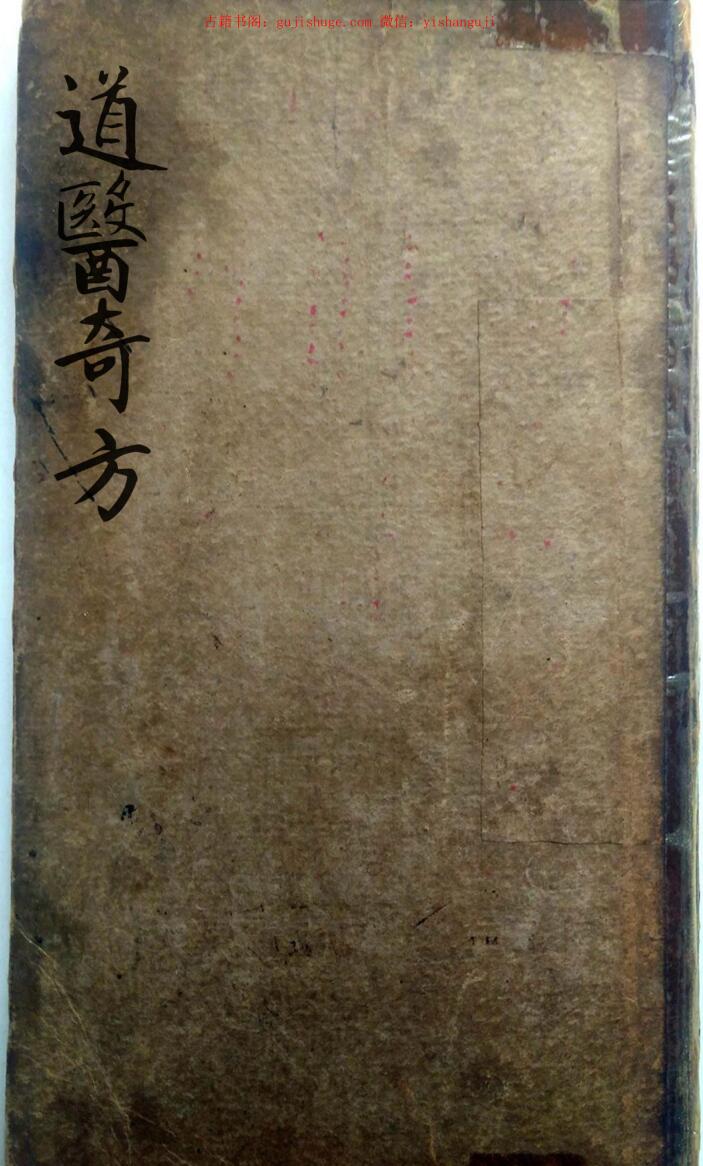 古籍书阁：gujishuge.com 微信：yishanguji
道醫奇方